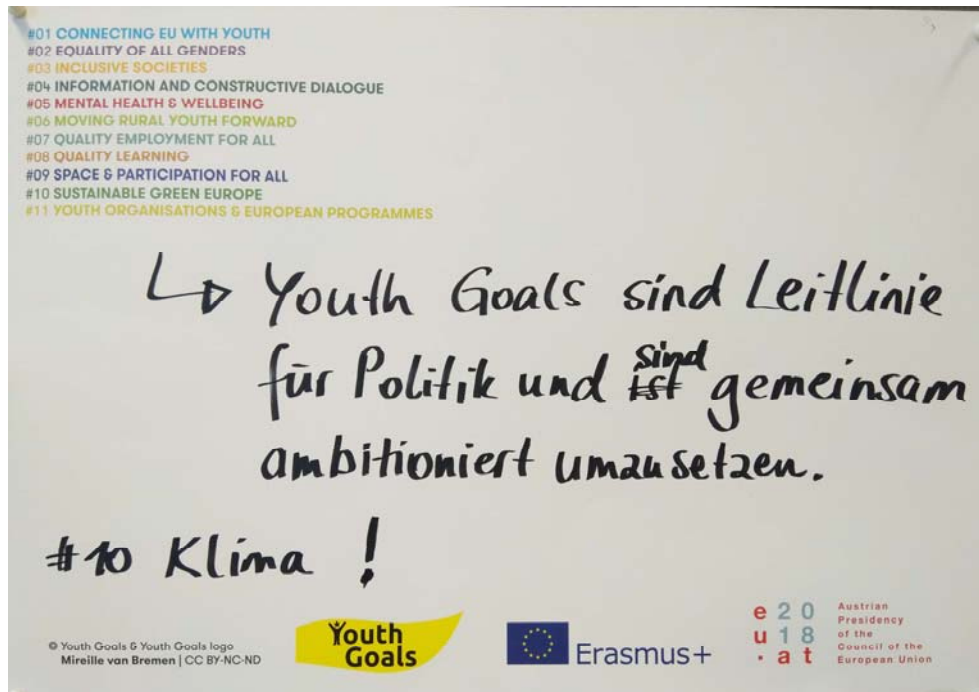 #01 CONNECTING EU WITH YOUTH
#02 EQUALITY OF ALL GENDERS
#03 INCLUSIVE SOCIETIES
#04 INFORMATION AND CONSTRUCTIVE DIALOGUE
#05 MENTAL HEALTH & WELLBEING
#06 MOVING RURAL YOUTH FORWARD
#07 QUALITY EMPLOYMENT FOR ALL
#08 QUALITY LEARNING
#09 SPACE & PARTICIPATION FOR ALL
#10 SUSTAINABLE GREEN EUROPE
#11 YOUTH ORGANISATIONS & EUROPEAN PROGRAMMES
↳ Youth Goals sind Leitlinie
sind
für Politik und ist gemeinsam
ambitioniert umzusetzen.
#10 Klima !
© Youth Goals & Youth Goals logo
Mireille van Bremen | CC BY-NC-ND
Youth
Goals
Erasmus+
e 20
u 18
. at
Austrian
Presidency
of the
Council of the
European Union